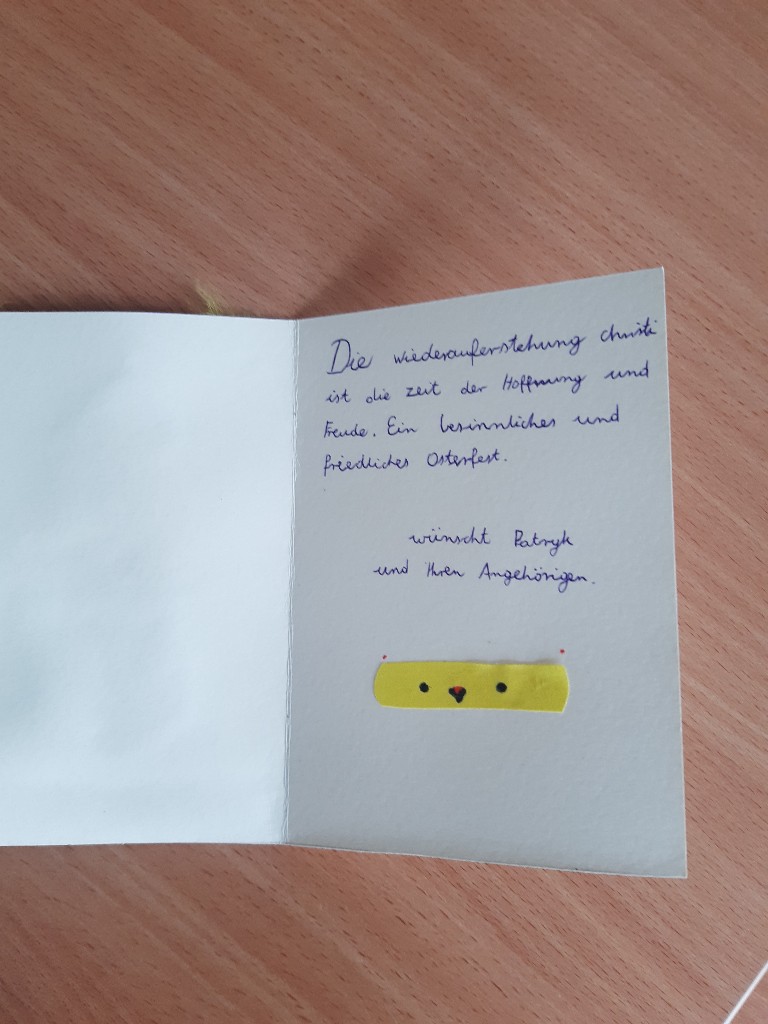 Die wiederauferstehung christi
ist die zeit der Hoffnung und
Freude. Ein besinnliches und
friedliches Osterfest.
wünscht Patryk
und Ihren Angehörigen.